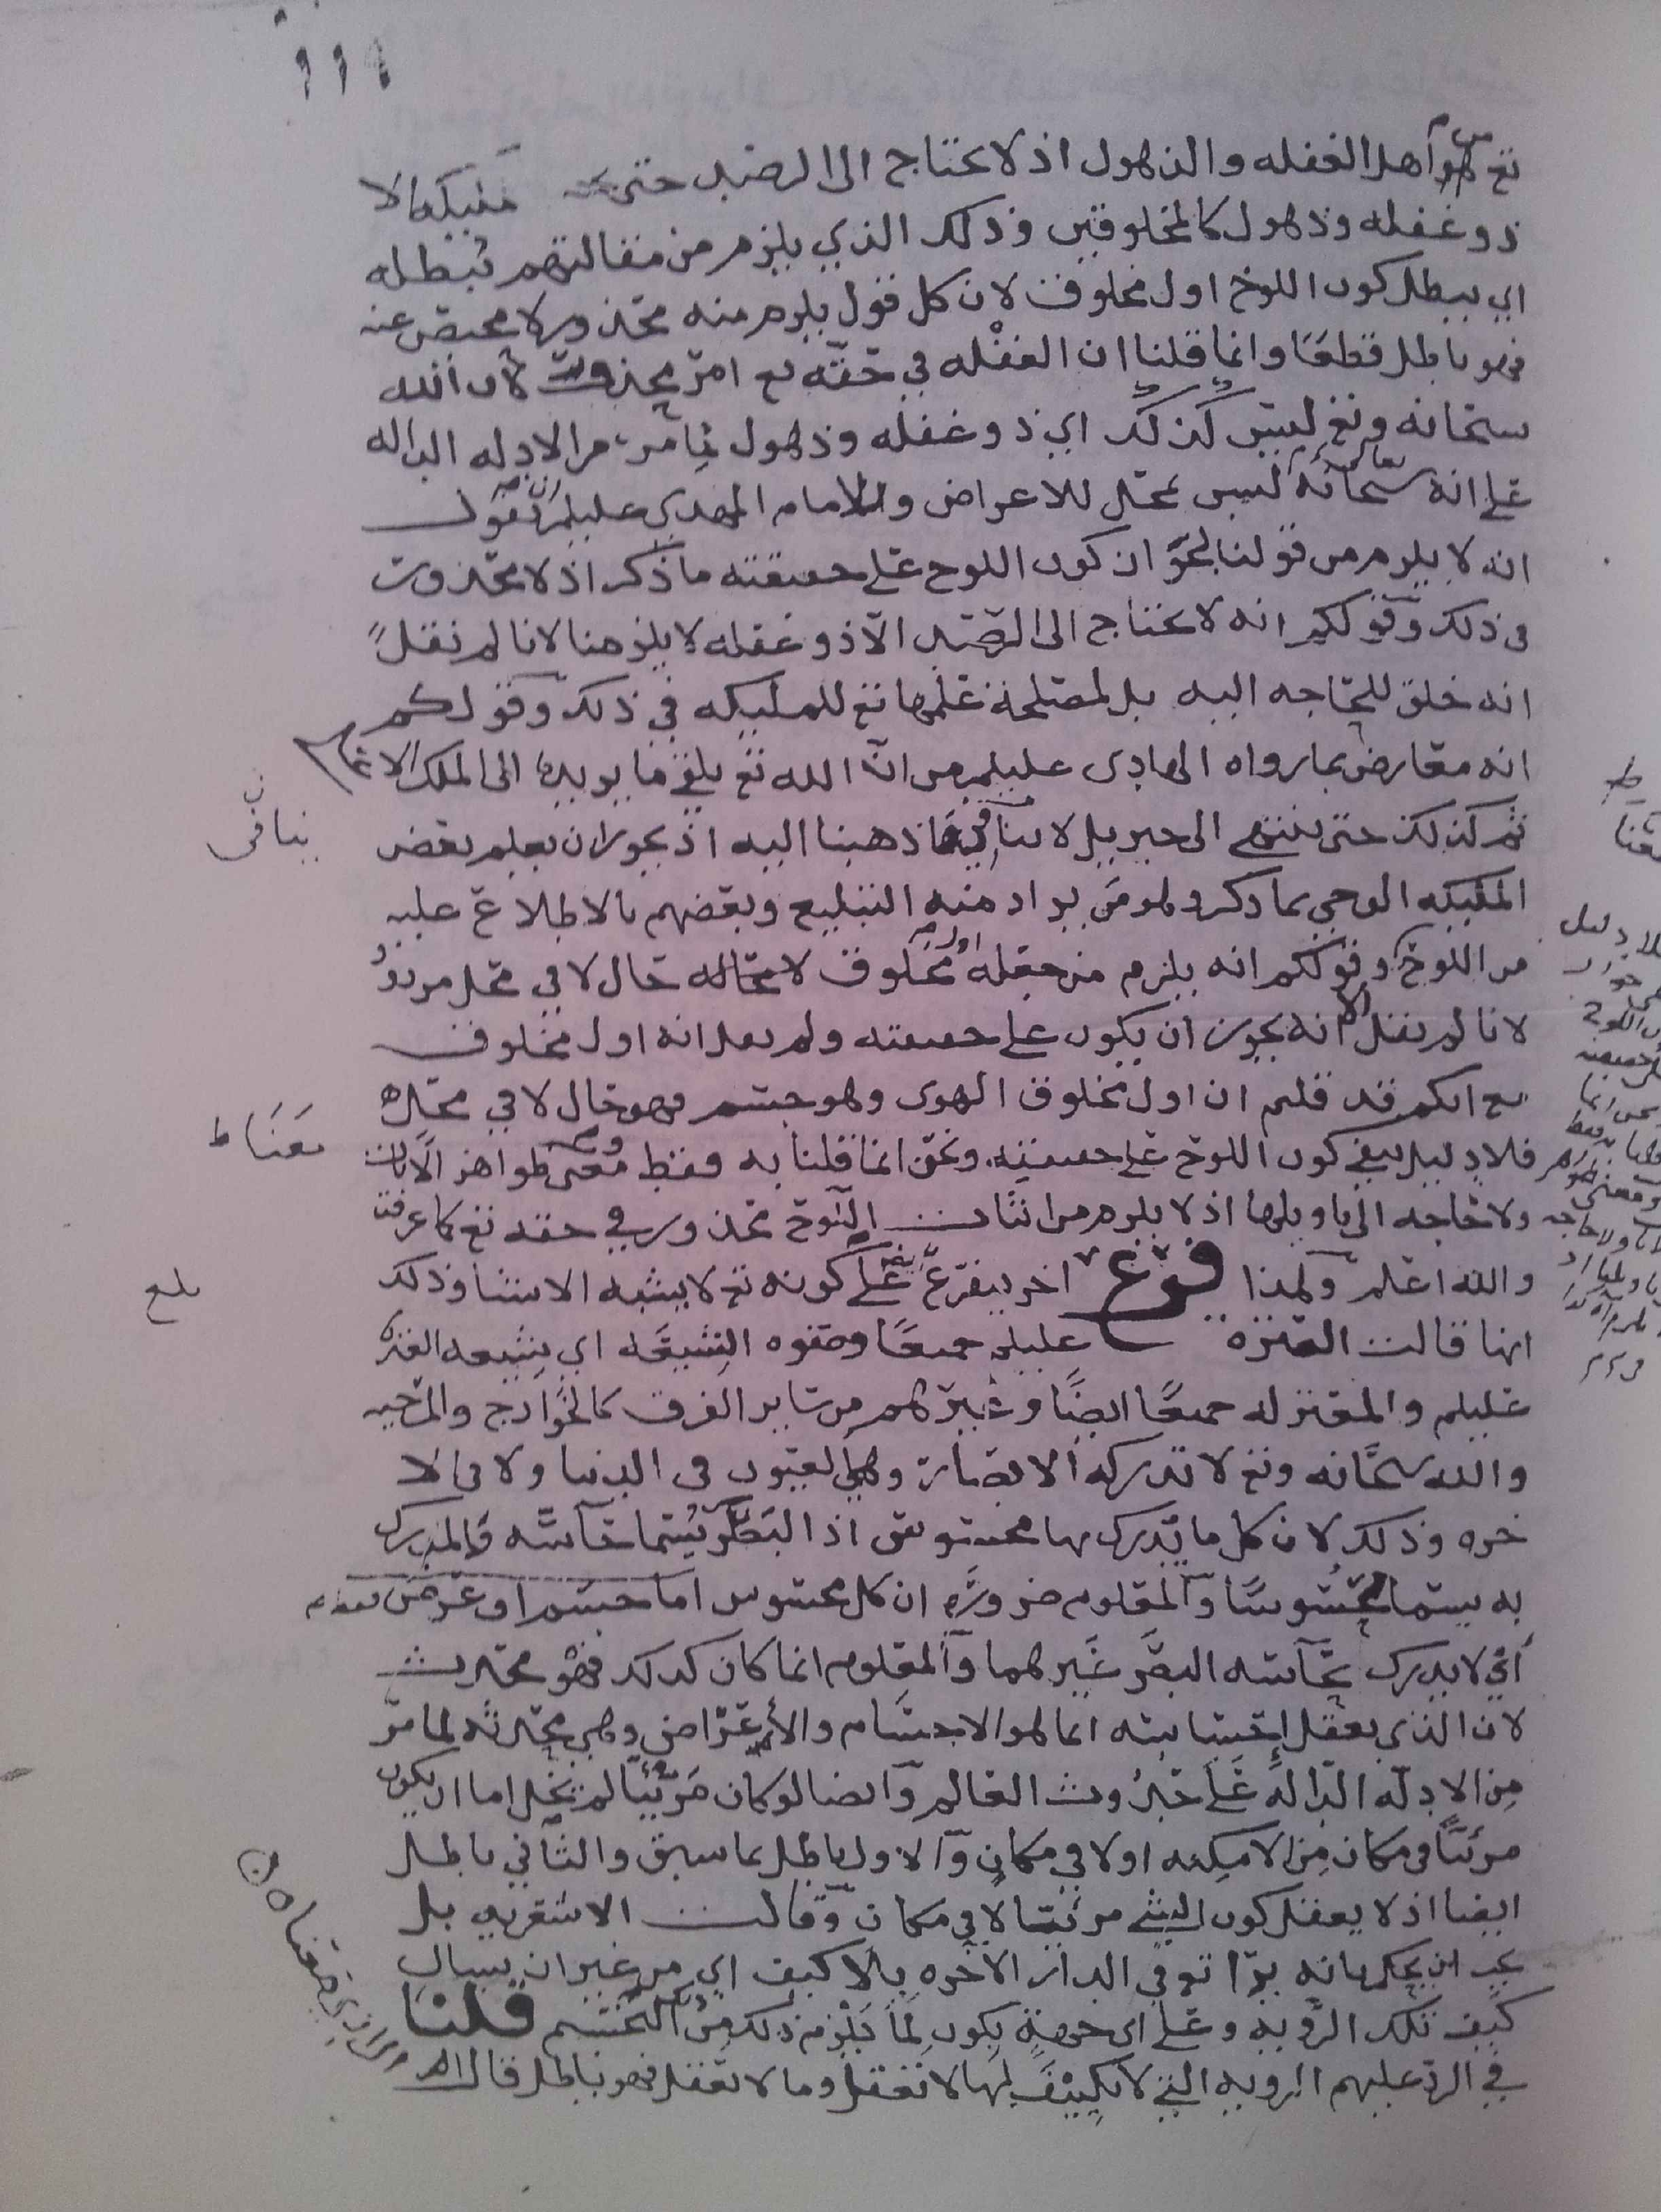 ١١٩
تع من اهل الغفله والذهول اذ لا يحتاج الى الرصد حتى الا
ذو غفله وذهول كالمخلوقين وذلك الذي يلزم من مقالتهم تبطله
اي يبطل كون اللوح اول مخلوق لان كل قول يلزم منه محذور لا محيص عنه
فهو باطل قطعًا وانما قلنا ان الغفله في حقه تع امر محذور لان الله
سبحانه وتع ليس كذلك اي ذو غفله وذهول لما مر من الادله الداله
على انه سبحانه ليس بمحل للاعراض وللامام المهدي عليلم ان يقول
انه لا يلزم من قولنا بجواز كون اللوح على حقيقته ما ذكر اذ لا محذور
في ذلك وقولكم انه لا يحتاج الى الرصد الا ذو غفله لا يلزمنا لانا لم نقل
انه خلق للحاجه اليه بل لمصلحة علمها تع للمليكه في ذلك وقولكم
انه معارض بما رواه الهادي عليلم من انّ الله تع يلقي ما يريده الى الملك الاعلى
ثم كذلك حتى ينتهي الى جبريل لا ينافي ما ذهبنا اليه اذ يجوز ان يعلم بعض
المليكه الوحي بما ذكر وهو من يراد منه التبليغ وبعضهم بالاطلاع عليه
من اللوح وقولكم انه يلزم من جعله اول مخلوق لا محاله حال لا في محل مردود
لانا لم نقل الا انه يجوز ان يكون على حقيقته ولم نقل انه اول مخلوق
مع انكم قد قلتم ان اول مخلوق الهوى وهو جسم فهو حال لا في محل
فلا دليل ينفي كون اللوح على حقيقته ونحن انما قلنا به فقط ومعنى ظواهر الآيات
ولا حاجه الى تاويلها اذ لا يلزم من اثبات اللوح محذور في حقه تع كما عرفت
والله اعلم ولهذا فرع اخر يتفرع على كونه تع لا يشبه الاشيا وذلك
انها قالت العتره عليلم جميعًا وصفوه الشيعه اي شيعه العتره
عليلم والمعتزله جميعًا ايضًا وغيرهم من ساير الفرق كالخوارج والمرجيه
والله سبحانه وتع لا تدركه الابصار وهي العيون في الدنيا ولا في الا
خره وذلك لان كل ما يدرك بها محسوس اذ البصر يسما حاسّه فالمدرك
به يسما محسوسًا والمعلوم ضروره ان كل محسوس اما جسم او عرض فقط
اي لا يدرك بحاسه البصر غيرهما والمعلوم انما كان كذلك فهو محدث
لان الذي يعقل احساسه انما هو الاجسام والأعراض وهي محدثه لما مرّ
من الادله الداله على حدوث العالم وايضا لو كان مرئيًا لم يخل اما ان يكون
مرئيًا في مكان من الامكنه اولا في مكان والاول باطل بما سبق والثاني باطل
ايضا اذ لا يعقل كون الشي مرئيا لا في مكان وقالت الاشعريه بل
يجب ان يحكم بانه يرا تع في الدار الآخره بلا كيف اي من غير ان يسال
كيف تلك الرؤيه وعلى اي جهة يكون لما يلزم ذلك من التجسم قلنا
في الرد عليهم الرويه التي لا تكييف لها لا تعقل وما لا تعقل فهو باطل قال
ينافى
معنا ط
بلغ
بلا دليل